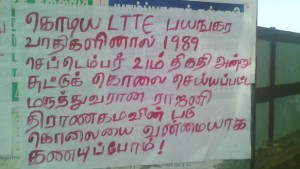 கொடிய LTTE பயங்கர
வாதிகளினால் 1989
செப்டெம்பர் 21ம் திகதி அன்று
சுட்டுக் கொலை செய்யப்பட்ட
மருத்துவரான ராஜனி
திராணகமவின் படு
கொலையை வன்மையாக
கண்டிப்போம்!